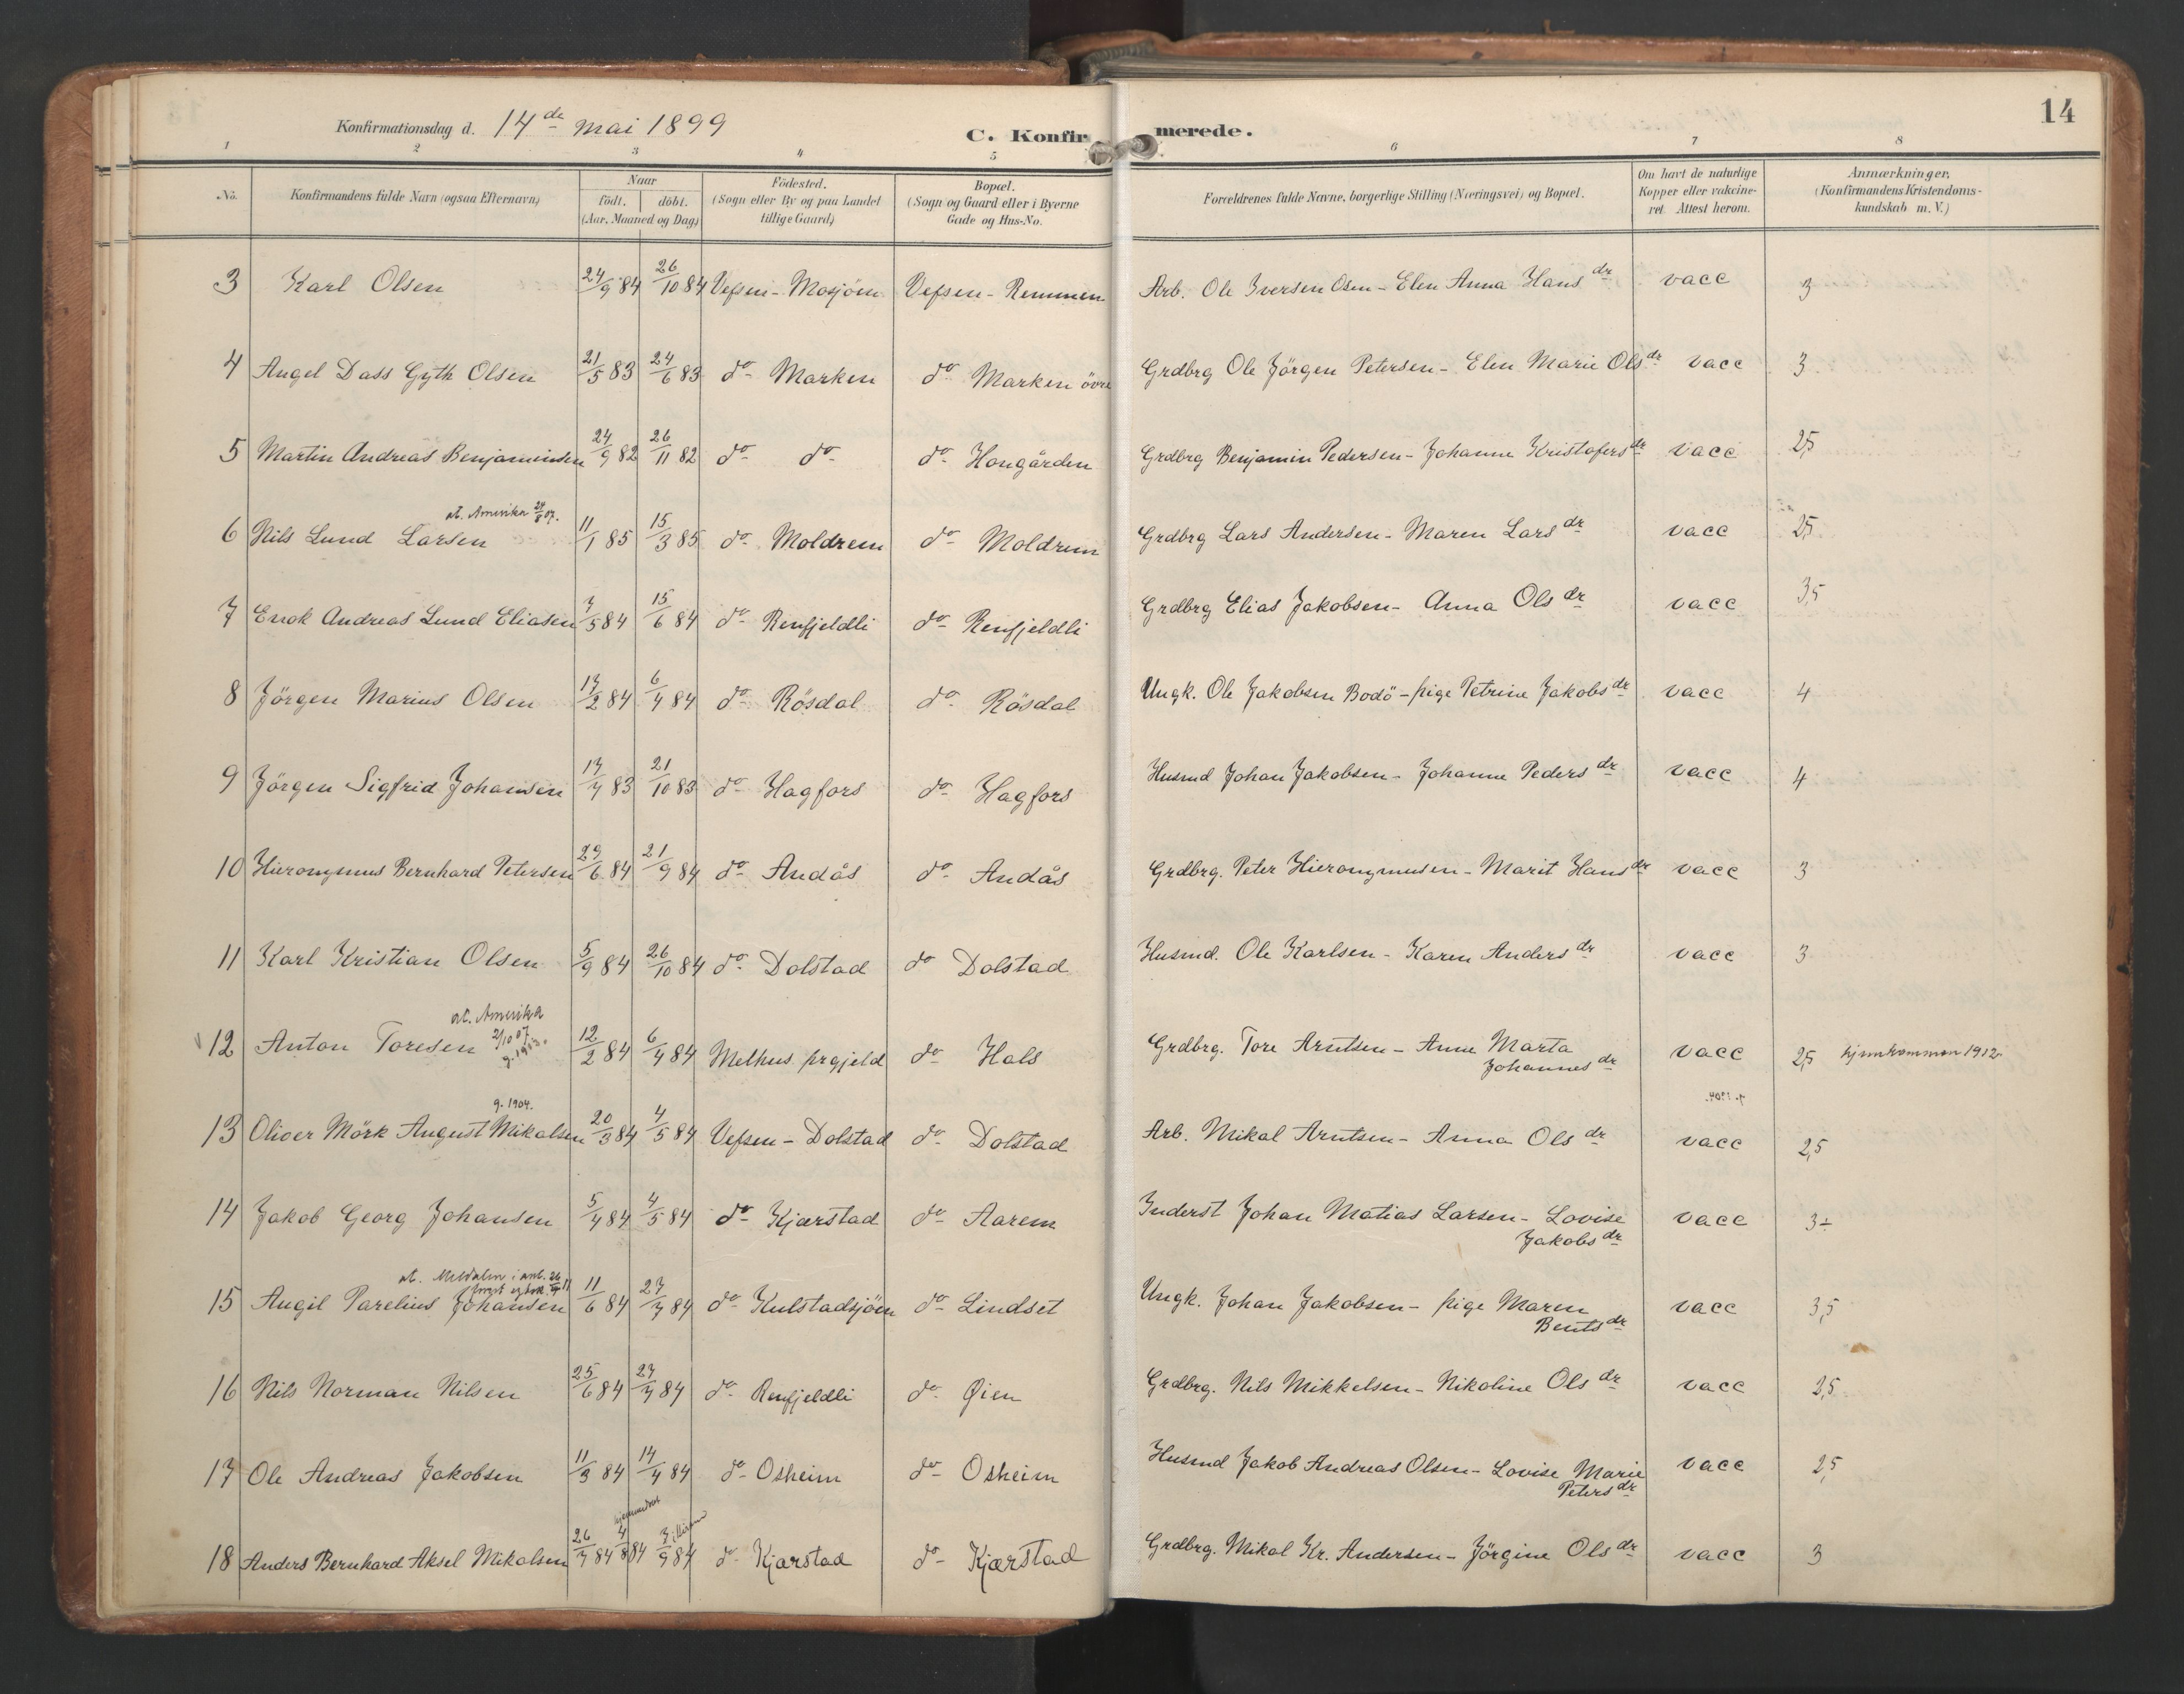 14
Konfirmationsdag d. 14de mai 1899
C. Konfirmerede.
1 2 3 4 5 6 7 8
No.
Konfirmandens fulde Navn (ogsaa Efternavn)
Naar
födt. döbt.
(Aar, Maaned og Dag)
Födested.
(Sogn eller By og paa Landet
tillige Gaard)
Bopæl.
(Sogn og Gaard eller i Byerne
Gade og Hus-No.
Forældrenes fulde Navne, borgerlige Stilling (Næringsvei) og Bopæl.
Om havt de naturlige
Kopper eller vakcine-
ret. Attest herom.
Anmærkninger,
(Konfirmandens Kristendoms-
kundskab m. V.)
3 Karl Olsen 24/9 84 26/10 84 Vefsen - Mosjöen Vefsen - Remmen Arb. Ole Iversen Osen - Elen Anna Hansdr vacc 3
4 Angel Dass Gyth Olsen 21/5 83 24/6 83 do Marken do Marken övre Grdbrg Ole Jörgen Petersen - Elen Marie Olsdr vacc 3
5 Martin Andreas Benjaminsen 24/9 82 26/11 82 do do do Hougården Grdbrg Benjamin Pedersen - Johanne Kristofersdr vacc 2,5
at. Amerika 07.
6 Nils Lund Larsen 11/1 85 15/3 85 do Moldrem do Moldrem Grdbrg Lars Andersen - Maren Larsdr vacc 2,5
7 Enok Andreas Lund Eliasen 7/5 84 15/6 84 do Renfjeldli do Renfjeldli Grdbrg Elias Jakobsen - Anna Olsdr vacc 3,5
8 Jörgen Marius Olsen 17/2 84 6/4 84 do Rösdal do Rösdal Ungk. Ole Jakobsen Bodö - pige Petrine Jakobsdr vacc 4
9 Jörgen Sigfrid Johansen 17/7 83 21/10 83 do Hagfors do Hagfors Husmd Johan Jakobsen - Johanne Pedersdr vacc 4
10 Hieronymus Bernhard Petersen 29/6 84 21/9 84 do Andås do Andås Grdbrg. Peter Hieronymusen - Marit Hansdr vacc 3
11 Karl Kristian Olsen 5/9 84 26/10 84 do Dolstad do Dolstad Husmd. Ole Karlsen - Karen Andersdr vacc 3
at. Amerika
2/10 07.
12 Anton Toresen 12/2 84 6/4 84 Melhus prgjeld do Hals Grdbrg. Tore Arntsen - Anne Marta
Johannesdr vacc 2,5 hjemkommen 1912
g. 1904.
13 Oliver Mörk August Mikalsen 20/3 84 4/5 84 Vefsen - Dolstad do Dolstad Arb. Mikal Arntsen - Anna Olsdr vacc 2,5
14 Jakob Georg Johansen 5/4 84 4/5 84 do Kjærstad do Aarem Inderst Johan Matias Larsen - Lovise
Jakobsdr vacc 3÷
15 Augil Parelius Johansen 11/6 84 27/7 84 do Kulstadsjöen do Lindset Ungk. Johan Jakobsen - pige Maren
Bentsdr vacc 3,5
16 Nils Norman Nilsen 25/6 84 27/7 84 do Renfjeldli do Øien Grdbrg. Nils Mikkelsen - Nikoline Olsdr vacc 2,5
17 Ole Andreas Jakobsen 11/3 84 14/4 84 do Osheim do Osheim Husmd Jakob Andreas Olsen - Lovise Marie
Petersdr vacc 2,5
18 Anders Bernhard Aksel Mikalsen 26/7 84 4/8 84 7/9 84 do Kjærstad do Kjærstad Grdbrg. Mikal Kr. Andersen - Jörgine Olsdr vacc 3